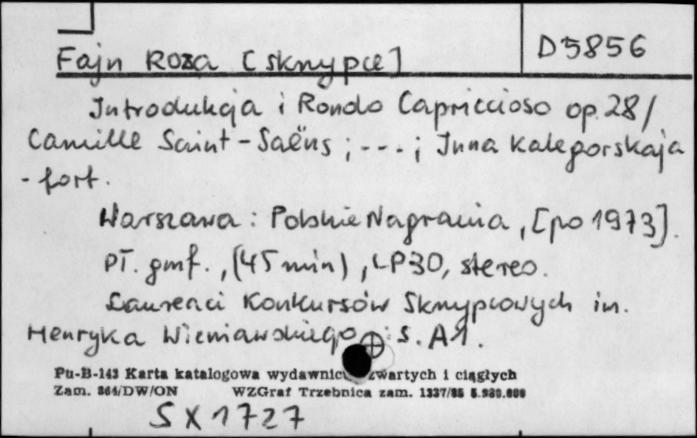 Fajn Roza [skrzypce]
D5856
Introdukcja i Rondo Capriccioso op. 28/
Camille Saint-Saëns ; --- ; Inna Kalegorskaja
- fort.
Warszawa : Polskie Nagrania, [po 1973].
Pł. gmf., (45 min), LP30, stereo.
Laureaci Konkursów Skrzypcowych im.
Henryka Wieniawskiego ; s. A1.
Pu-B-143 Karta katalogowa wydawnictw zwartych i ciągłych
Zam. 364/DW/ON WZGraf Trzebnica zam. 1337/85 5.980.000
SX1727